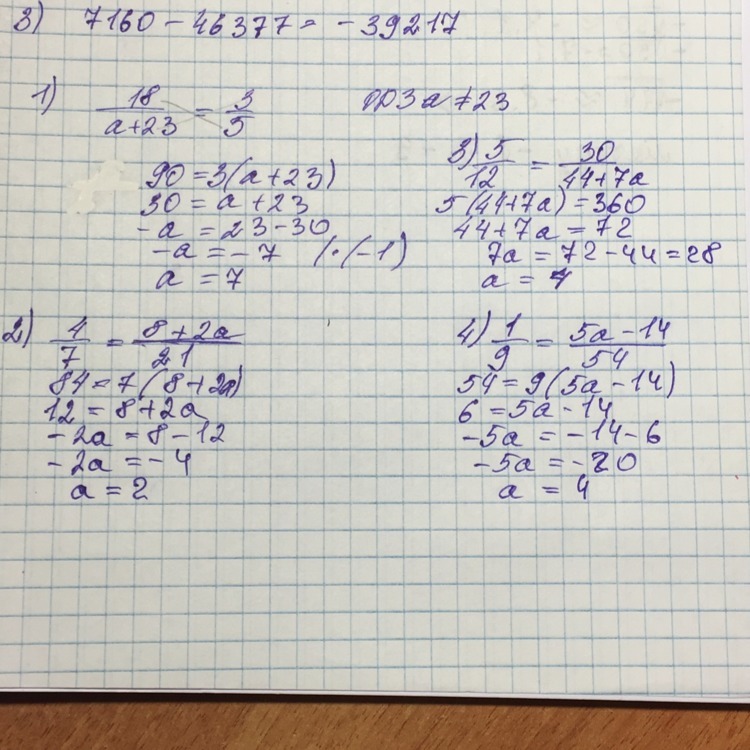 3) 7160 - 46377 = - 39217
1) 18/(a+23) = 3/5 ОДЗ a ≠ 23
90 = 3(a+23)
30 = a + 23
-a = 23-30
-a = -7 | ·(-1)
a = 7
3) 5/12 = 30/(44+7a)
5(44+7a) = 360
44+7a = 72
7a = 72-44 = 28
a = 4
2) 4/7 = (8+2a)/21
84 = 7(8+2a)
12 = 8+2a
-2a = 8-12
-2a = -4
a = 2
4) 1/9 = (5a-14)/54
54 = 9(5a-14)
6 = 5a-14
-5a = -14-6
-5a = -20
a = 4